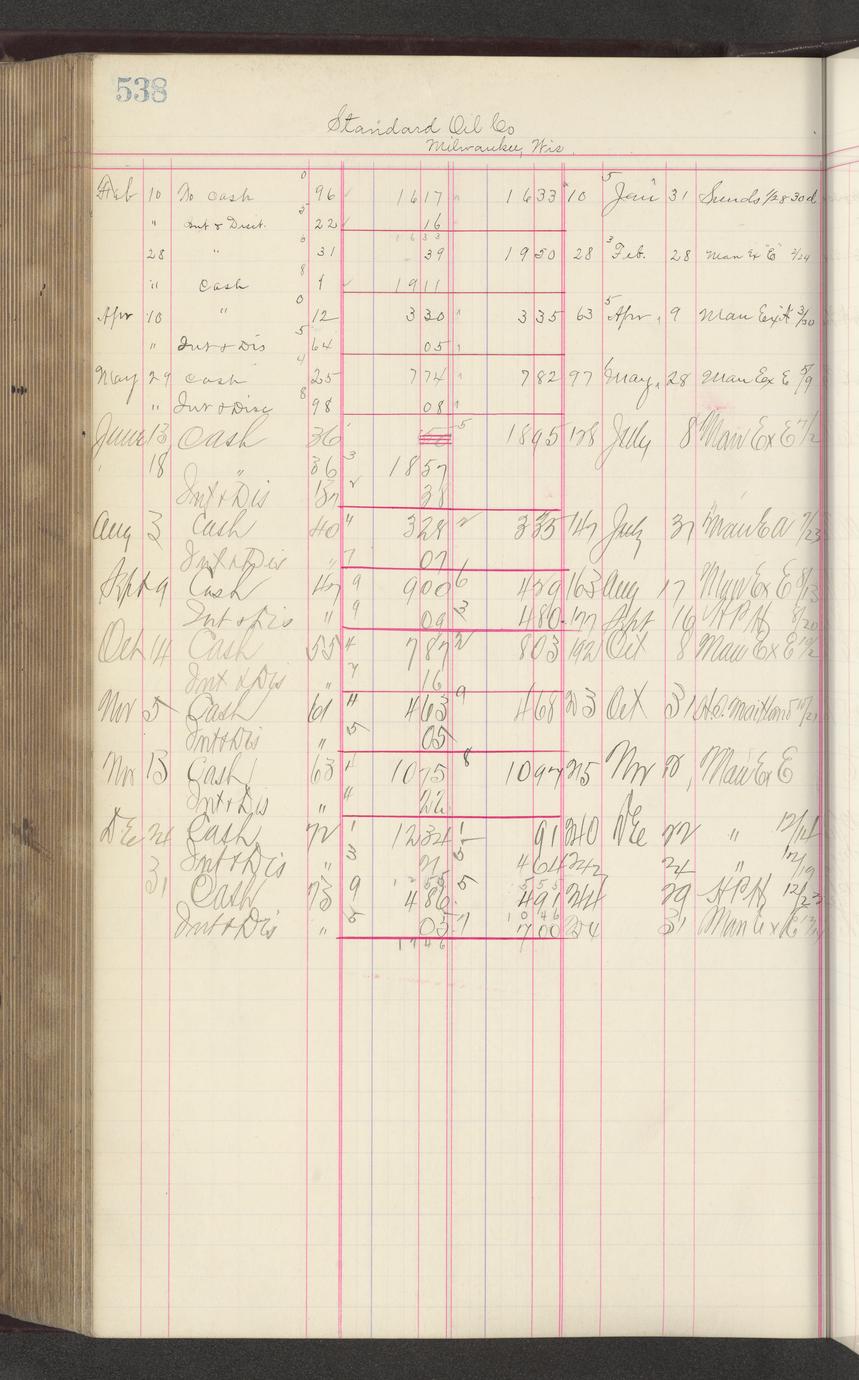 538
Standard Oil Co
Milwaukee, Wis
Feb 10 To Cash 0 96 1617 1633 10 5 Jan 31 Sunds 1/28 30d
" Int & Disct. 5 22 16
1633
28 " 6 31 39 1950 28 3 Feb. 28 Man Ex "E" 2/24
" Cash 8 1911
Apr 10 " 0 12 330 335 63 5 Apr 9 Man Ex 3/30
" Int & Dis 5 64 05
May 29 Cash 4 25 774 782 97 May 28 Man Ex E 5/9
" Int & Disc 8 98 08
June 13 Cash 36 5 1895 128 July 8 Man Ex E 7/2
18 " 36 3 1857
Int & Dis 137 2 38
Aug 3 Cash 40 " 328 2 335 147 July 31 Man Ex 7/23
Int & Dis " 7 07
Sept 9 Cash 47 9 900 6 429 163 Aug 17 Man Ex E 8/13
Int & Dis " 9 09 3 480 177 Spt 16 H P H 8/20
Oct 14 Cash 55 4 787 2 803 192 Oct 8 Man Ex E 10/2
Int & Dis " 7 16
Nov 5 Cash 61 4 463 9 468 203 Oct 31 10/21
Int & Dis " 5 05
Nov 13 Cash 63 4 1075 8 1097 215 Nov Man Ex E
Int & Dis " 4 22
De 24 Cash 72 1 1234 1 91 240 De 22 " 12/14
Int & Dis " 3 21 5 464 242 24 " 12/19
1255 555
31 Cash 73 9 486 5 491 244 29 H P H 12/23
1046
Int & Dis " 5 05 7 700 254 31 Man Ex E
1746